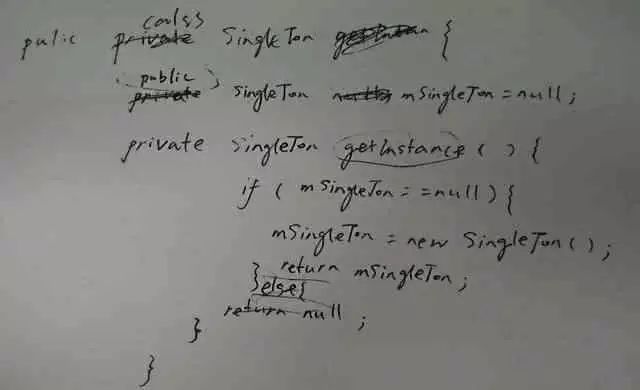 pulic calss SingleTon {
public SingleTon mSingleTon = null;
private SingleTon getInstance () {
if ( mSingleTon = = null ) {
mSingleTon = new SingleTon ( ) ;
return mSingleTon ;
} else {
return null ;
}
}